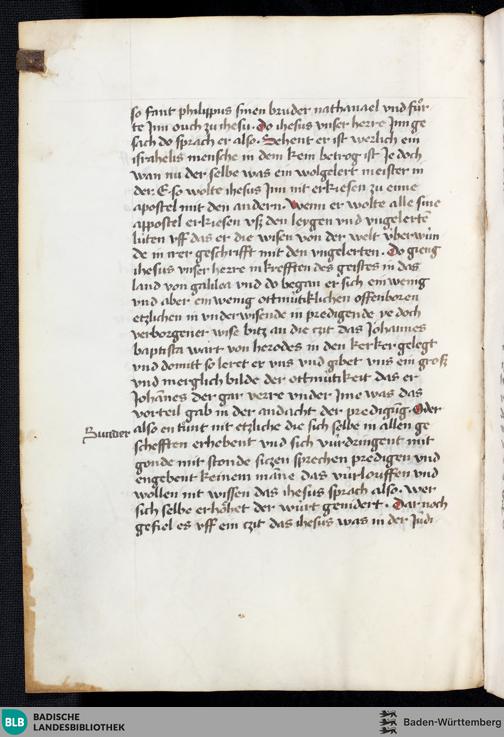 so fant philippus sinen bruder nathanael vnd für-
te Jnn ouch zu ihesu. Do ihesus vnser herre Jnn ge
sach do sprach er also. Sehent er ist werlich ein
israhelis mensche in dem kein betrog ist Je doch
wan nu der selbe was ein wolgelert meister in
der .E. so wolte ihesus Jnn nit erkiesen zu eime
apostel mit den andern. Wenn er wolte alle sine
appostel erkiesen vsz den leygen vnd vngelerte
lüten vff das er die wisen von der welt vberwün
de in irer geschrifft mit den vngelerten. Do gieng
ihesus vnser herre in krefften des geistes in das
land von galilea vnd do began er sich ein wenig
vnd aber ein wenig ottmütklichen offenboren
etzlichen in vnderwisende in predigende ye doch
verborgener wise bitz an die czit das Johannes
baptista wart von herodes in den kerker gelegt
vnd domitt so leret er vns vnd gibet vns ein grosz
vnd merglich bilde der ottmütikeit das er
Johannes der gar verre vnder Jme was das
vorteil gab in der andacht der predigung. Oder
Sunder
also en tünt nit etzliche die sich selbe in allen ge
schefften erhebent vnd sich vürdringent mit
gonde mit stonde siczen sprechen predigen vnd
engebent keinem manne das vürlouffen vnd
wollen nit wissen das ihesus sprach also. Wer
sich selbe erhöhet der würt genidert. Dar noch
gefiel es vff ein czit das ihesus was in der Judi
BLB
BADISCHE
LANDESBIBLIOTHEK
Baden-Württemberg